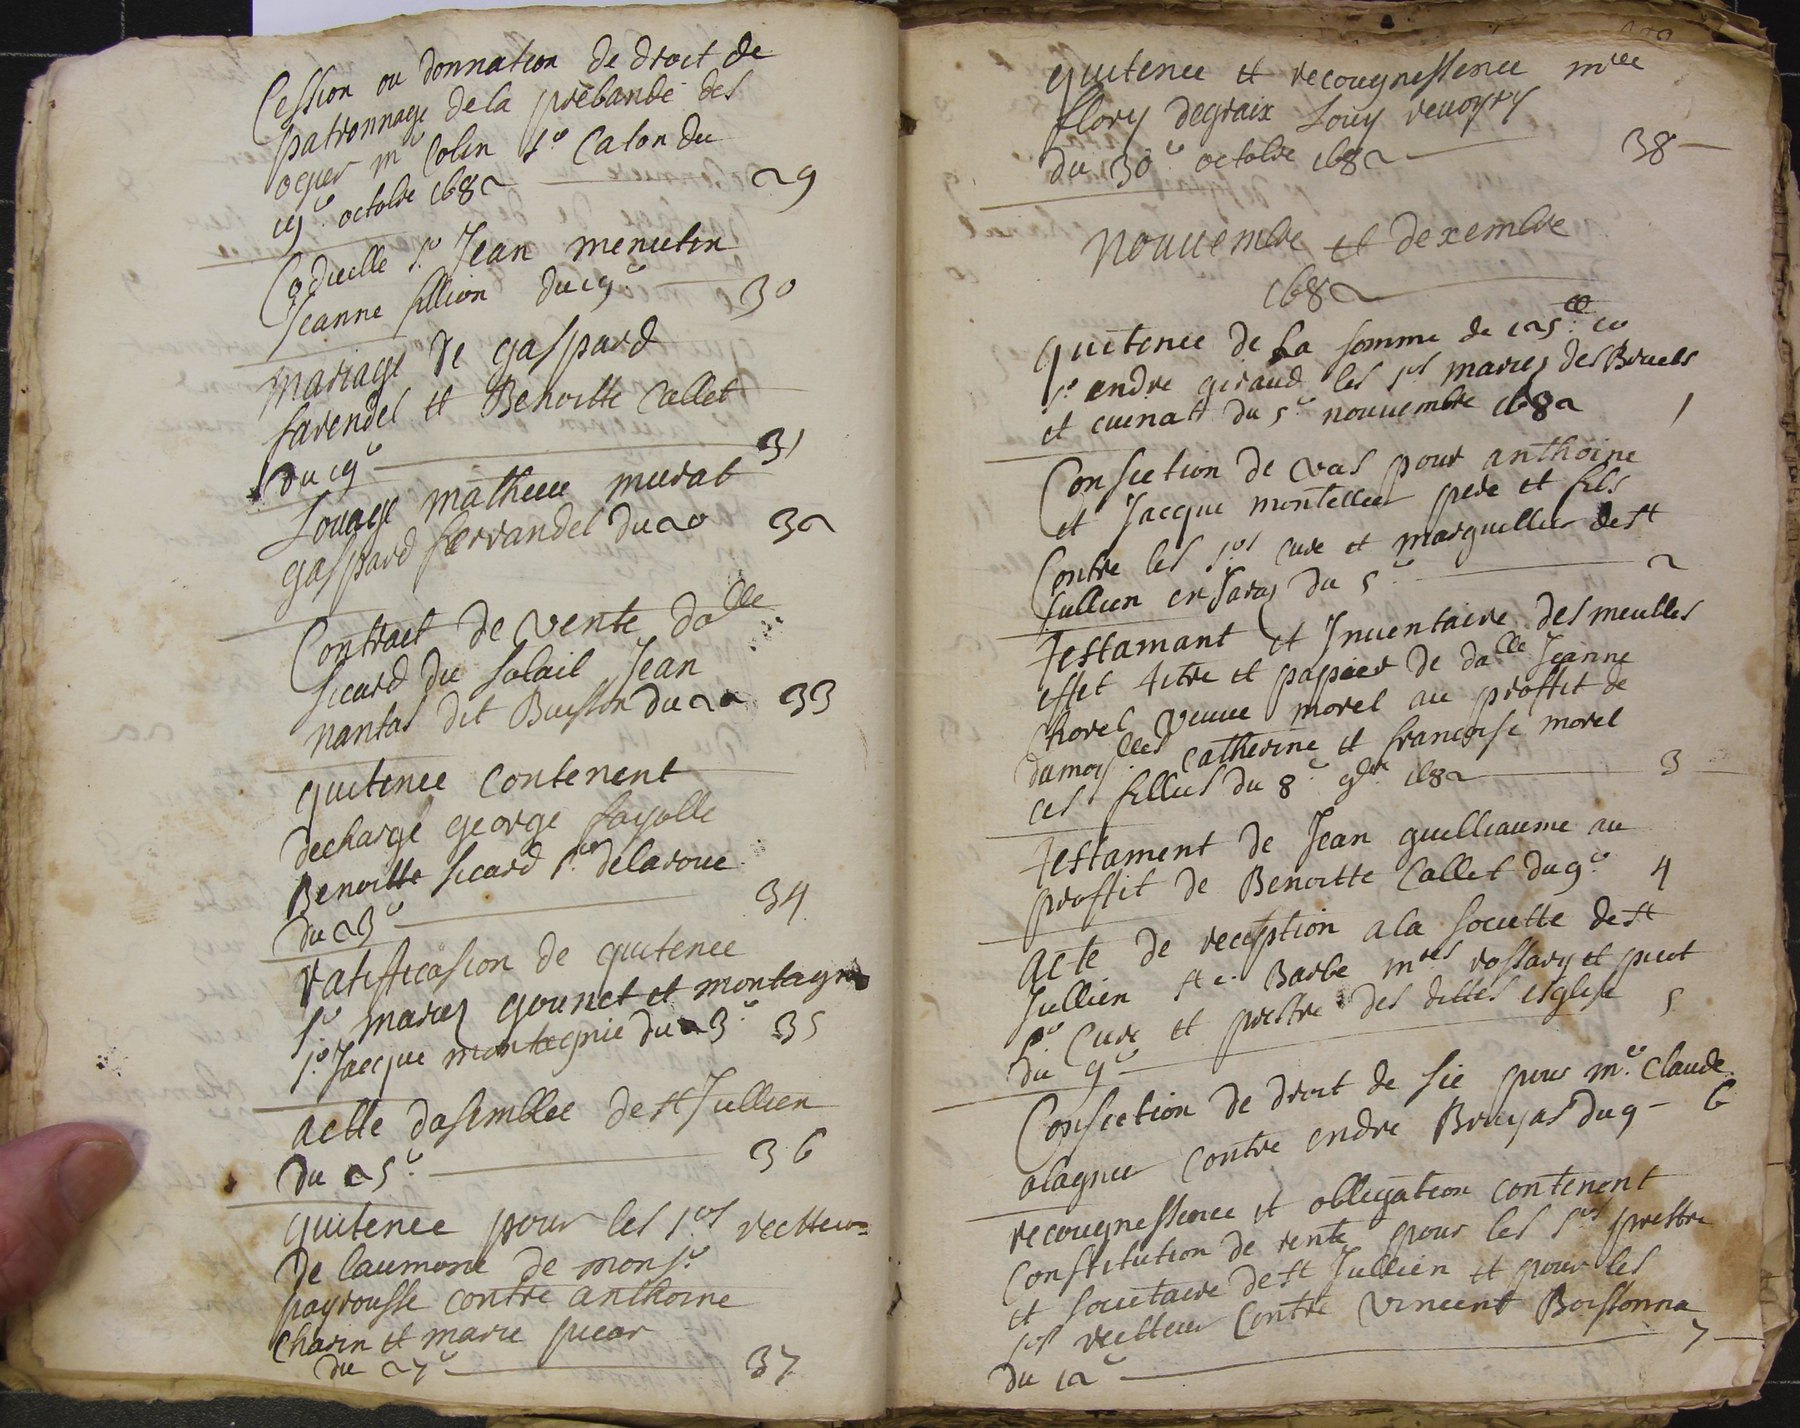 Cession ou donnation de droit de
patronnage de la prebande des
ogier mre Colin sr Caton du
19e octobre 1682 29
Codicille sr Jean menutin
Jeanne fillion du 19e 30
mariage de gaspard
farendel et Benoitte Callet
du 19e 31
Louage mathieu murat
gaspard ferrandel du 20 32
Contract de vente dalle
sicard du solail Jean
nantas dit Buisson du 22 33
quitence contenent
decharge george fayolle
Benoitte sicard sr delaroue
du 23e 34
ratifficasion de quitence
sr marcq gounet et montagn
sr Jacque montagnie du 23e 35
acte dasemblee de st Jullien
du 25e 36
quitence pour les srs recteur
de laumone de monsr
payrousse contre anthoine
charin et marie picar
du 27e 37
quitence et recougnessence mre
flory degraix Louy revoyry
du 30e octobre 1682 38
nouvembre et dexembre
1682
quitence de la somme de 125ll 10
sr endre giraud les srs maries des Bruels
et cunat du 5e nouvembre 1682 1
Consiction de vas pour anthoine
et Jacque montellier pere et fils
Contre les srs cure et marguillier de st
Jullien en Jaraz du 5e 2
Testamant et Inventaire des meubles
effet titre et papier de dalle Jeanne
thorel veuve morel au proffit de
damoyslles catherine et francoise morel
ces filles du 8e 9bre 1682 3
Testament de Jean guilliaume au
proffit de Benoitte Callet du 9e 4
acte de reception a la societte de st
Jullien ste Barbe mres rossary et picot
sr Cure et prestre des dittes esglise 5
du 9e
Consiction de droit de sie pour mre Claude
alagnier contre endre Bruyas du 9 6
recougnessence et obligation contenent
Constitution de rente pour les srs prestre
et socuetaire de st Jullien et pour les
srs recteur Contre vincent Boissonna
du 12e 7